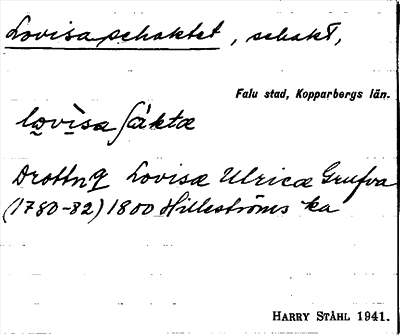 Lovisaschaktet, schakt,
Falu stad, Kopparbergs län.
lo̯vìsa ʃákta
Drottng Lovisa Ulrica Grufva
(1780-82) 1800 Hilleströms ka
HARRY STÅHL 1941.